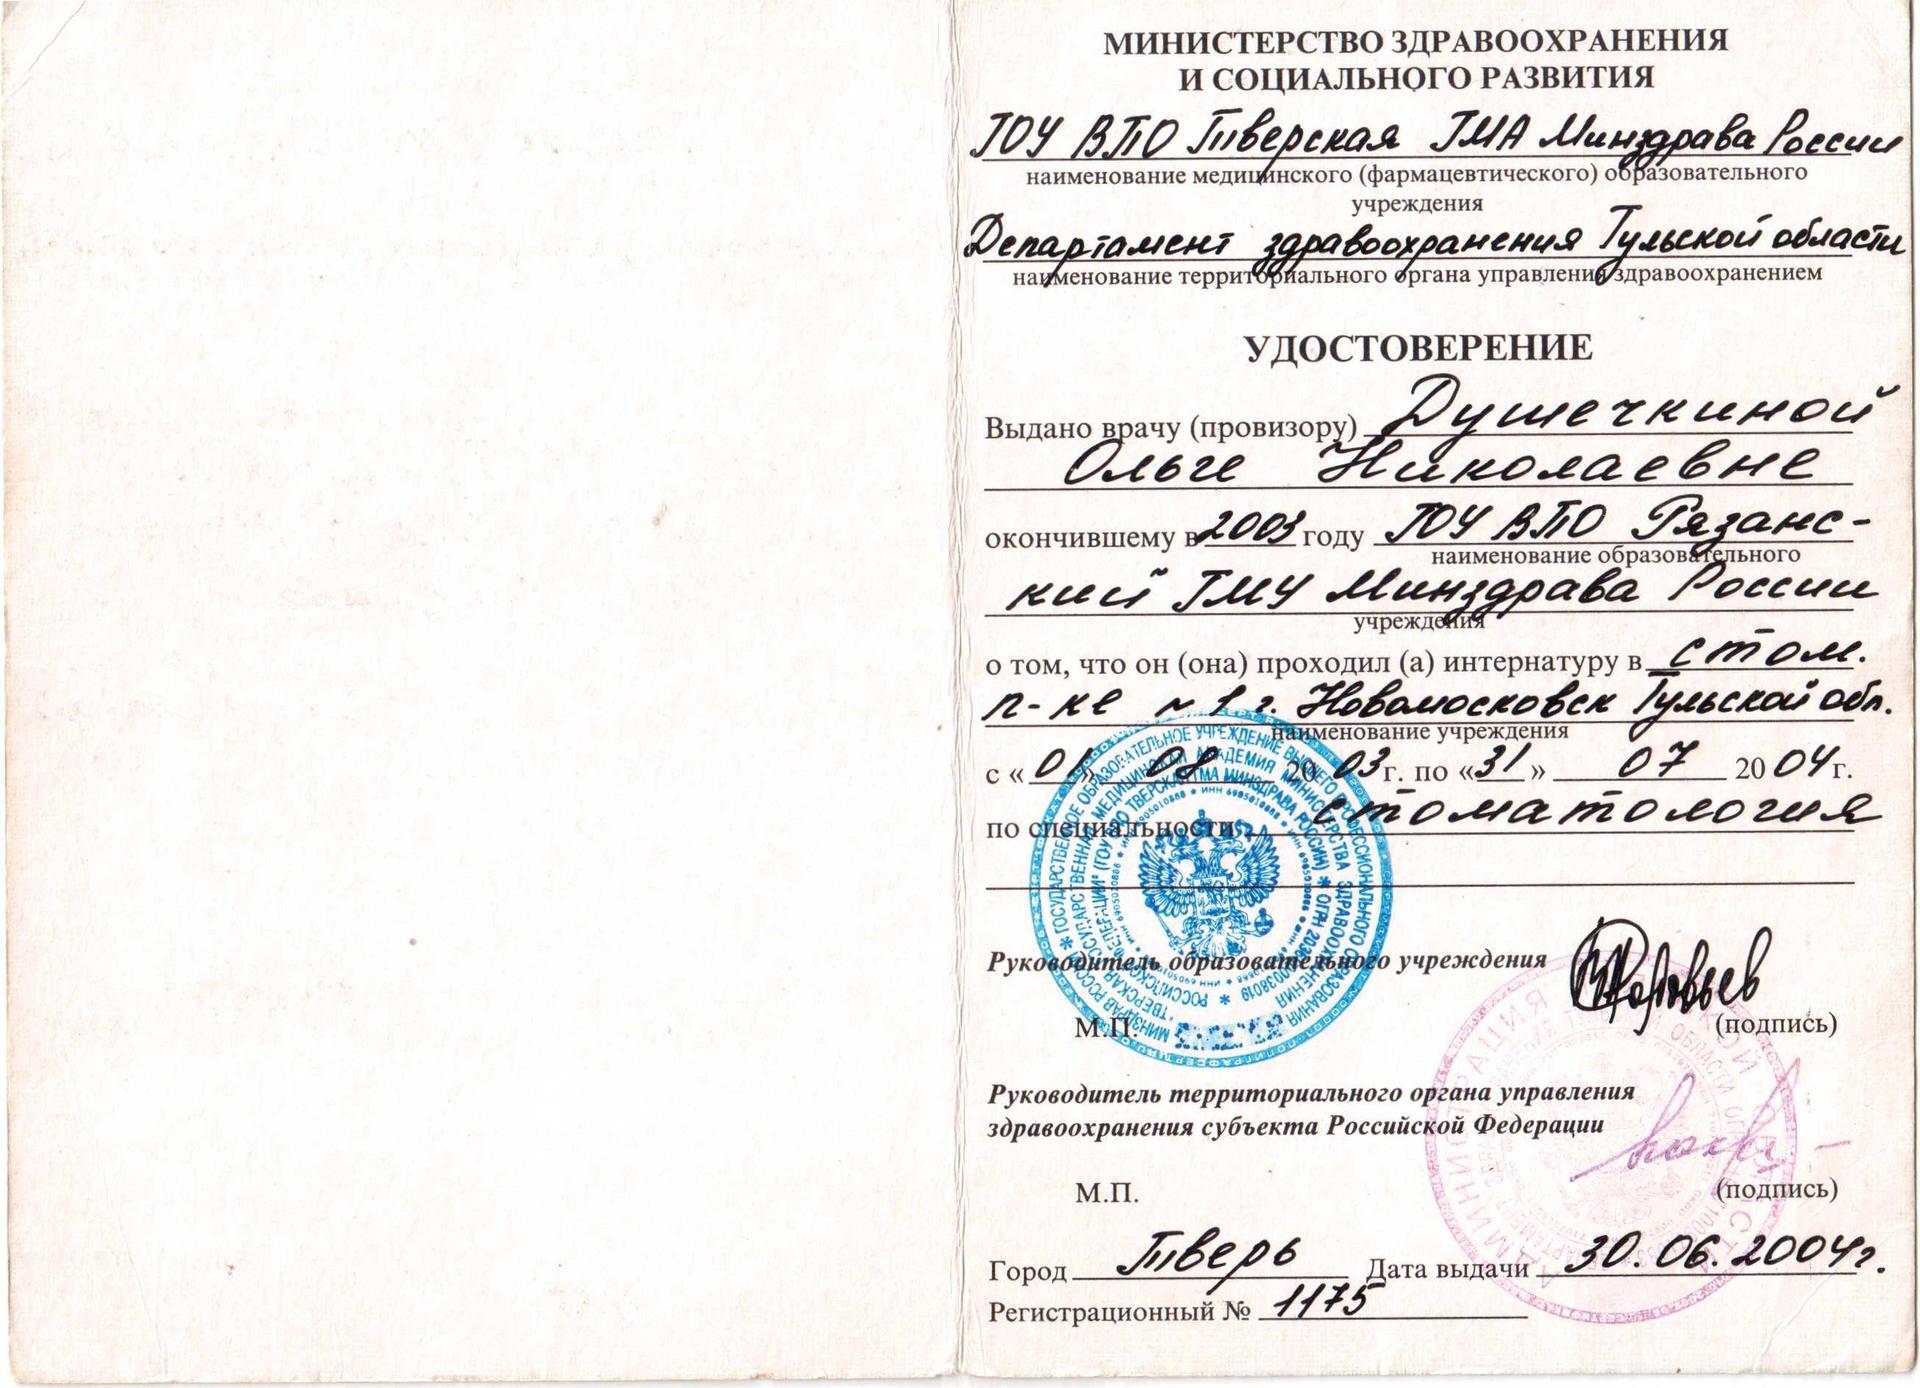 МИНИСТЕРСТВО ЗДРАВООХРАНЕНИЯ
И СОЦИАЛЬНОГО РАЗВИТИЯ
ГОУ ВПО Тверская ГМА Минздрава России
наименование медицинского (фармацевтического) образовательного
учреждения
Департамент здравоохранения Тульской области
наименование территориального органа управления здравоохранением
УДОСТОВЕРЕНИЕ
Выдано врачу (провизору) Душечкиной
Ольге Николаевне
окончившему в 2003 году ГОУ ВПО Рязанс-
наименование образовательного
кий ГМУ Минздрава России
учреждения
о том, что он (она) проходил (а) интернатуру в стом.
п-ке № 1 г. Новомосковск Тульской обл.
наименование учреждения
с «01» 08 2003 г. по «31» 07 2004 г.
по специальности стоматология
Руководитель образовательного учреждения
М.П. (подпись)
Руководитель территориального органа управления
здравоохранения субъекта Российской Федерации
М.П. (подпись)
Город Тверь Дата выдачи 30.06.2004г.
Регистрационный № 1175